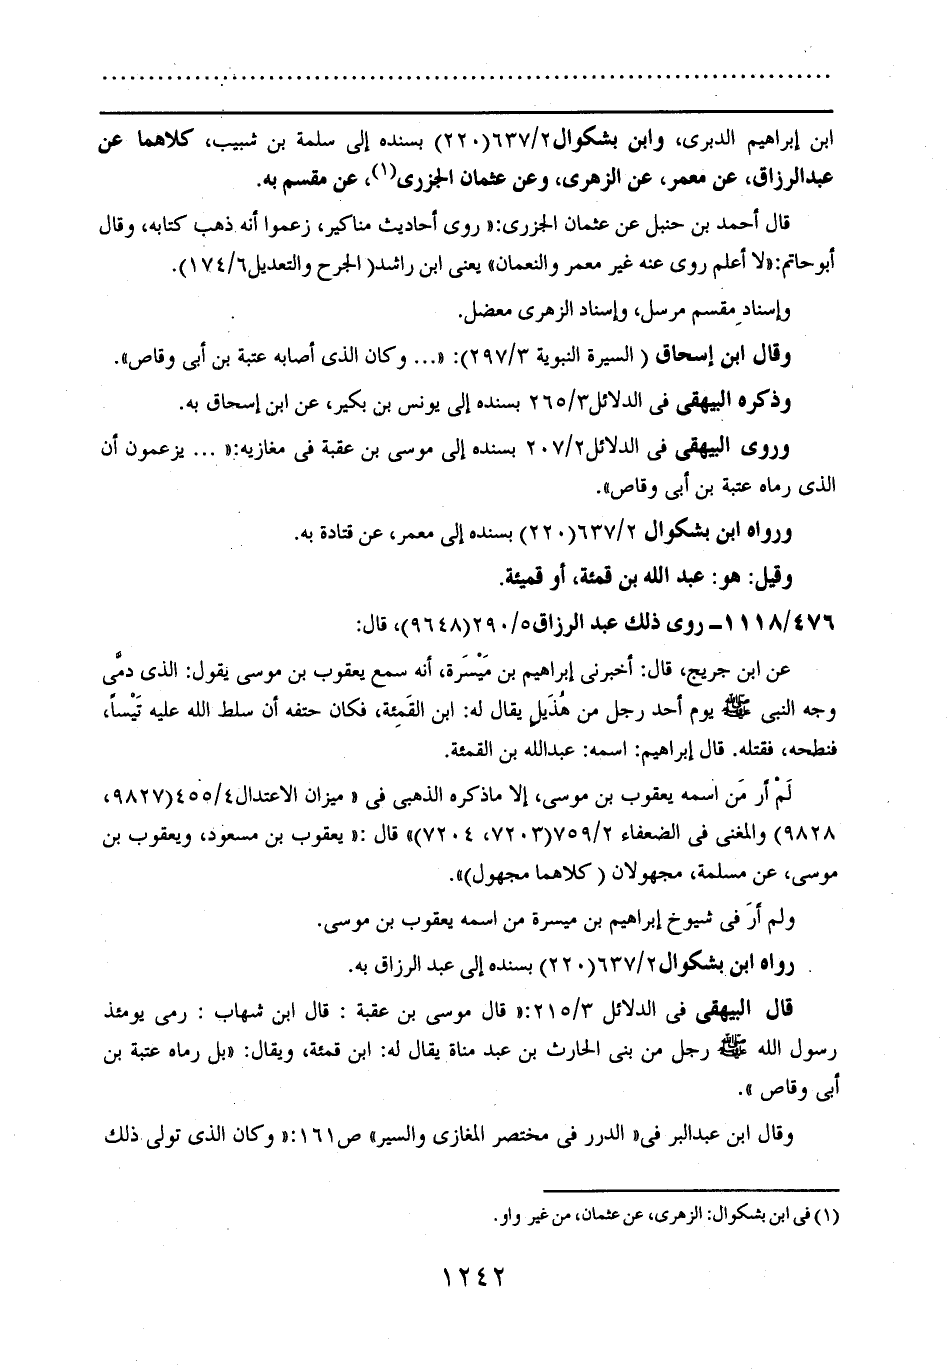 ابن إبراهيم الدبرى، وابن بشكوال٦٣٧/٢(٢٢٠) بسنده إلى سلمة بن شبيب، كلاهما عن
عبدالرزاق، عن معمر، عن الزهرى، وعن عثمان الجزرى(١)، عن مقسم به.
قال أحمد بن حنبل عن عثمان الجزرى:« روى أحاديث مناكير، زعموا أنه ذهب كتابه، وقال
أبوحاتم:«لا أعلم روى عنه غير معمر والنعمان» يعنى ابن راشد( الجرح والتعديل١٧٤/٦).
وإسناد مقسم مرسل، وإسناد الزهرى معضل.
وقال ابن إسحاق ( السيرة النبوية ٢٩٧/٣): «... وكان الذى أصابه عتبة بن أبى وقاص».
وذكره البيهقى فى الدلائل٢٦٥/٣ بسنده إلى يونس بن بكير، عن ابن إسحاق به.
وروى البيهقى فى الدلائل٢٠٧/٢ بسنده إلى موسى بن عقبة فى مغازيه:« ... يزعمون أن
الذى رماه عتبة بن أبى وقاص».
ورواه ابن بشكوال ٦٣٧/٢(٢٢٠) بسنده إلى معمر، عن قتادة به.
وقيل: هو: عبد الله بن قمئة، أو قميئة.
١١١٨/٤٧٦ــ روى ذلك عبد الرزاق٢٩٠/٥(٩٦٤٨)، قال:
عن ابن جريج، قال: أخبرنى إبراهيم بن مَيْسَرة، أنه سمع يعقوب بن موسى يقول: الذى دمَّى
وجه النبى ﷺ يوم أحد رجل من هُذَيلٍ يقال له: ابن القَمِئة، فكان حتفه أن سلط الله عليه تَيْساً،
فنطحه، فقتله. قال إبراهيم: اسمه: عبدالله بن القمئة.
لَمْ أر مَن اسمه يعقوب بن موسى، إلا ماذكره الذهبى فى « ميزان الاعتدال٤٥٥/٤(٩٨٢٧،
٩٨٢٨) والمغنى فى الضعفاء ٧٥٩/٢(٧٢٠٣، ٧٢٠٤)» قال :« يعقوب بن مسعود، ويعقوب بن
موسى، عن مسلمة، مجهولان ( كلاهما مجهول)».
ولم أرَ فى شيوخ إبراهيم بن ميسرة من اسمه يعقوب بن موسى.
رواه ابن بشكوال٦٣٧/٢(٢٢٠) بسنده إلى عبد الرزاق به.
قال البيهقى فى الدلائل ٢١٥/٣:« قال موسى بن عقبة : قال ابن شهاب : رمى يومئذ
رسول الله ﷺ رجل من بنى الحارث بن عبد مناة يقال له: ابن قمئة، ويقال: «بل رماه عتبة بن
أبى وقاص ».
وقال ابن عبدالبر فى« الدرر فى مختصر المغازى والسير» ص١٦١:« وكان الذى تولى ذلك
(١) فى ابن بشكوال: الزهرى، عن عثمان، من غير واو.
١٢٤٢